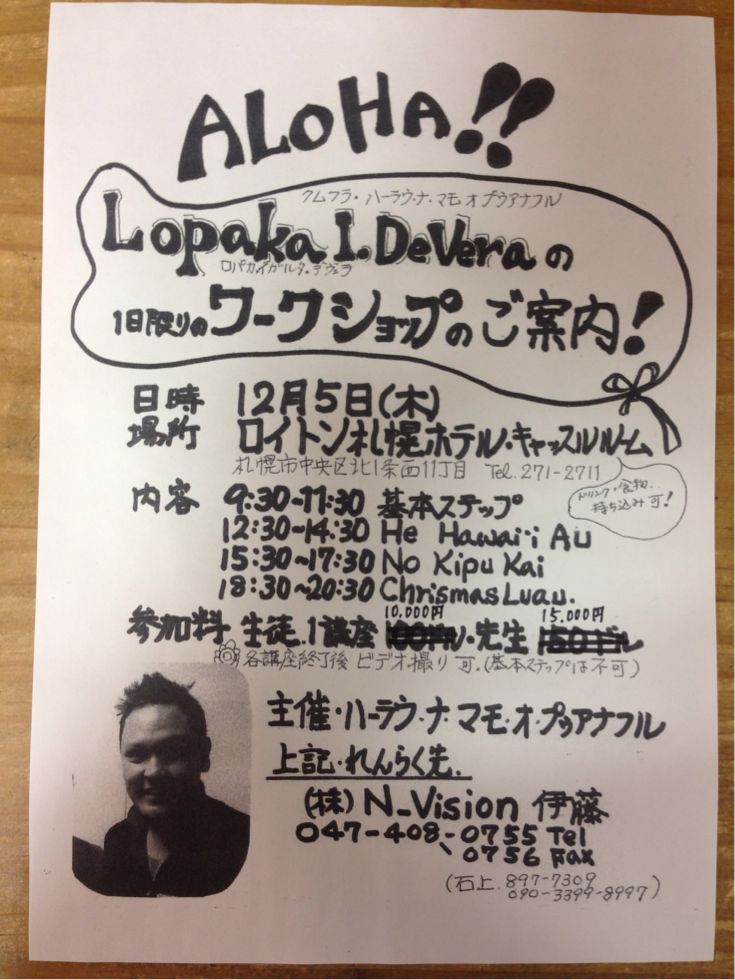 ALOHA!!
クムフラ・ハーラウ・ナ・マモ オ プゥアナフル
Lopaka I. DeVeraの
ロパカイガルタ・デヴェラ
1日限りの ワークショップのご案内!
日時 12月5日(木)
場所 ロイトン札幌ホテル・キャッスルルーム
札幌市中央区北1条西11丁目 Tel.271-2711
ドリンク・食物
持ち込み可!
内容 9:30~11:30 基本ステップ
12:30~14:30 He Hawai'i Au
15:30~17:30 No Kipu Kai
18:30~20:30 Chrismas Luau.
10.000円 15.000円
参加料 生徒.1講座 100ドル・先生 150ドル
各講座終了後 ビデオ撮り可.(基本ステップは不可)
主催・ハーラウ・ナ・マモ・オ・プゥアナフル
上記・れんらく先.
(株) N-Vision 伊藤
047-408-0755 Tel
、0756 Fax
(石上.897-7309
090-3399-8997)